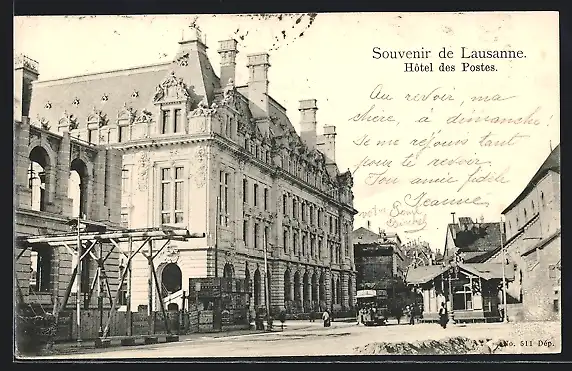 Souvenir de Lausanne.
Hôtel des Postes.
Au revoir, ma
chère, à dimanche!
Je me réjouis tant
de te revoir
Ton amie fidèle
Jeanne
No. 511 Dép.